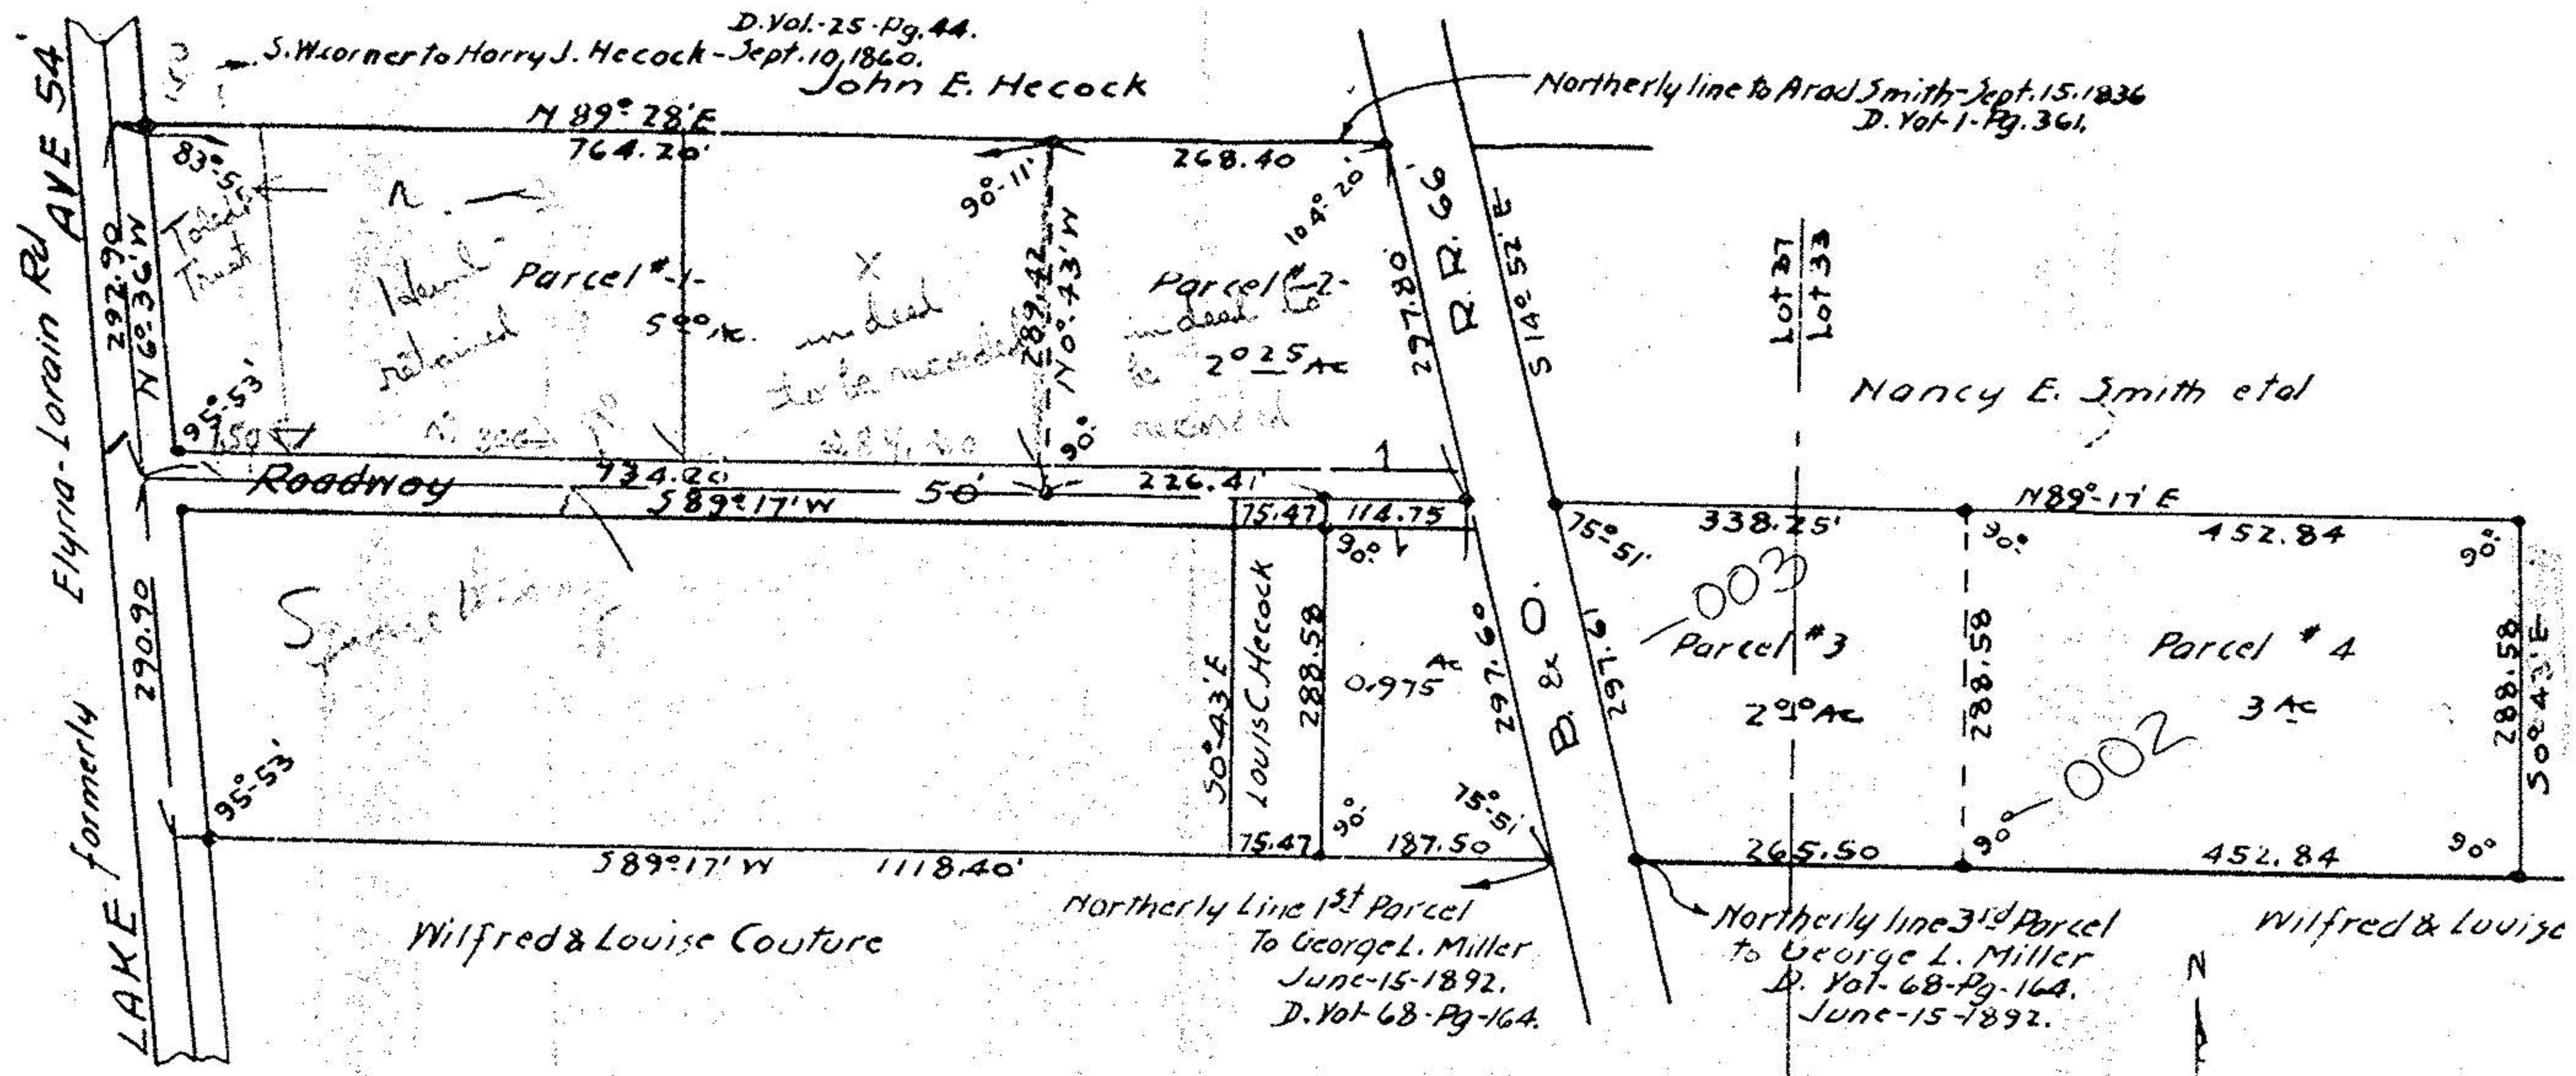 D. Vol.-25-Pg. 44.
S.W. corner to Harry J. Hecock - Sept. 10, 1860.
John E. Hecock
Northerly line to Arad Smith - Sept. 15. 1836
D. Vol-1-Pg. 361.
LAKE AVE 54'
formerly Elyria-Lorain Rd
N 89° 28' E
764.20'
268.40
83°-54
90°-11'
104° 20'
292.90
N 6° 36' W
Toledo
Trust
Parcel #-1-
retained
X
in deed
to be recorded
289.42
N 0° 43' W
Parcel #-2-
in deed to
be
recorded
2.025 Ac
297.80'
R.R. 66'
S 14° 52' E
Lot 37
Lot 33
Nancy E. Smith et al
95°-53'
150
90°
Roadway
734.20
S 89° 17' W
50'
226.41'
75.47
114.75
90°
75°-51'
338.25'
N 89°-17' E
90°
452.84
90°
290.90
95°-53'
S 0° 43' E
Louis C. Hecock
288.58
0.975 Ac
297.60
B. & O.
297.61
003
Parcel #3
288.58
Parcel # 4
3 Ac
002
288.58
S 0° 43' E
S 89° 17' W
1118.40'
75.47
90°
187.50
75°-51'
265.50
90°
452.84
90°
Wilfred & Louise Couture
Northerly Line 1st Parcel
To George L. Miller
June-15-1892.
D. Vol-68-Pg-164.
Northerly line 3rd Parcel
to George L. Miller
D. Vol-68-Pg-164.
June-15-1892.
Wilfred & Louise
N